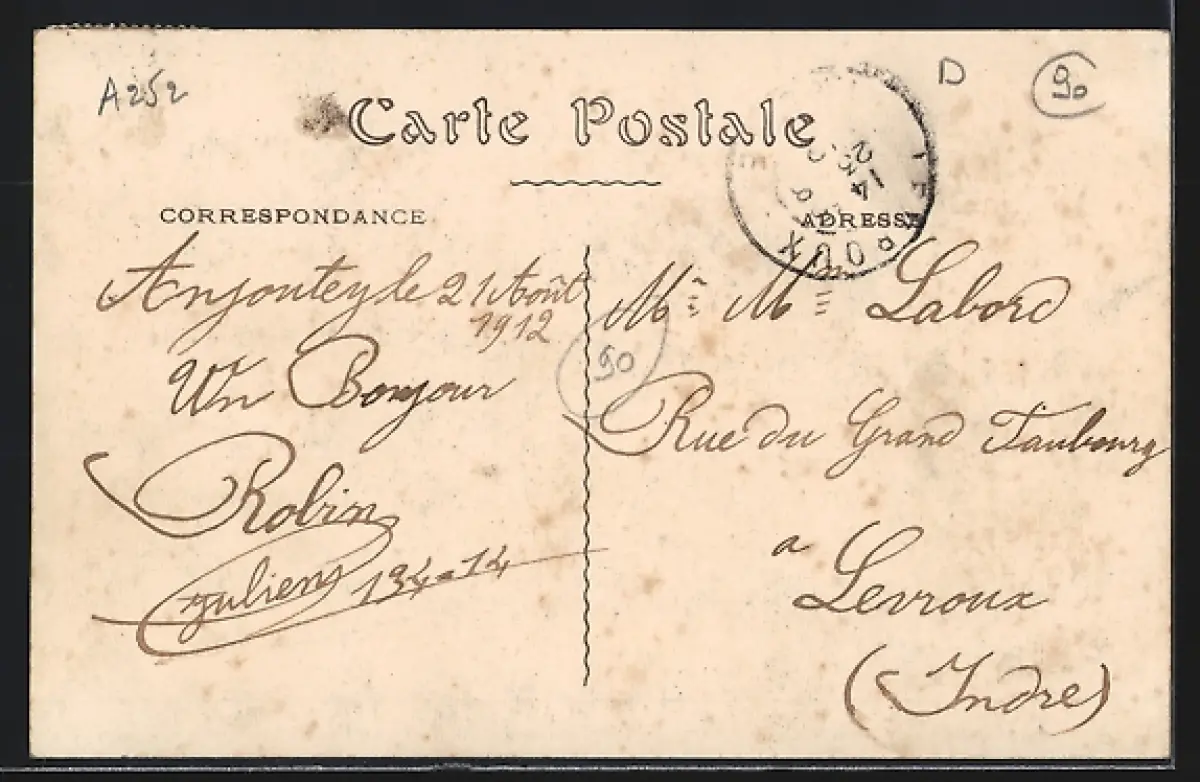 A252
D
90
Carte Postale
CORRESPONDANCE
ADRESSE
Anjoutey le 21 Août
1912
Un Bonjour
Robin
Julien
90
Mr Mme Labord
Rue du Grand Faubourg
a Levroux
(Indre)
14
23